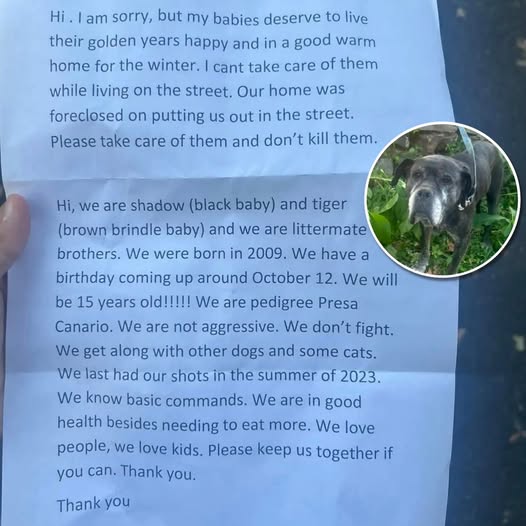 Hi . I am sorry, but my babies deserve to live
their golden years happy and in a good warm
home for the winter. I cant take care of them
while living on the street. Our home was
foreclosed on putting us out in the street.
Please take care of them and don't kill them.
Hi, we are shadow (black baby) and tiger
(brown brindle baby) and we are littermate
brothers. We were born in 2009. We have a
birthday coming up around October 12. We will
be 15 years old!!!!! We are pedigree Presa
Canario. We are not aggressive. We don't fight.
We get along with other dogs and some cats.
We last had our shots in the summer of 2023.
We know basic commands. We are in good
health besides needing to eat more. We love
people, we love kids. Please keep us together if
you can. Thank you.
Thank you